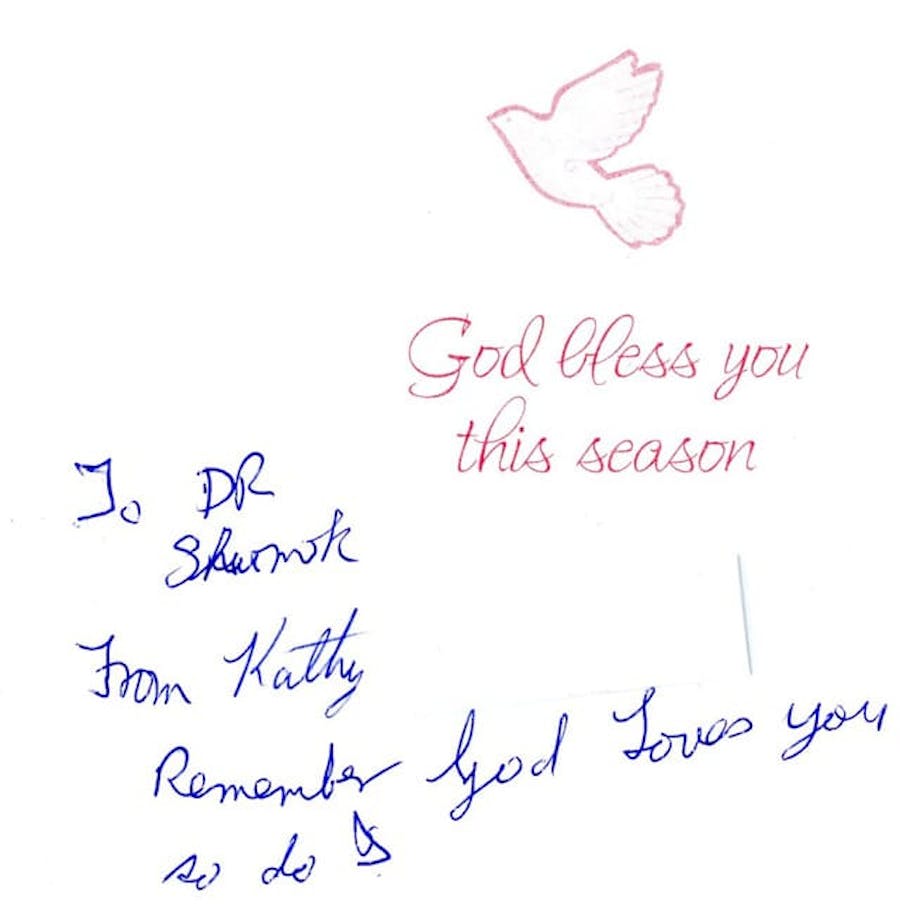 God bless you
this season
To DR
From Kathy
Remember God Loves you
so do I